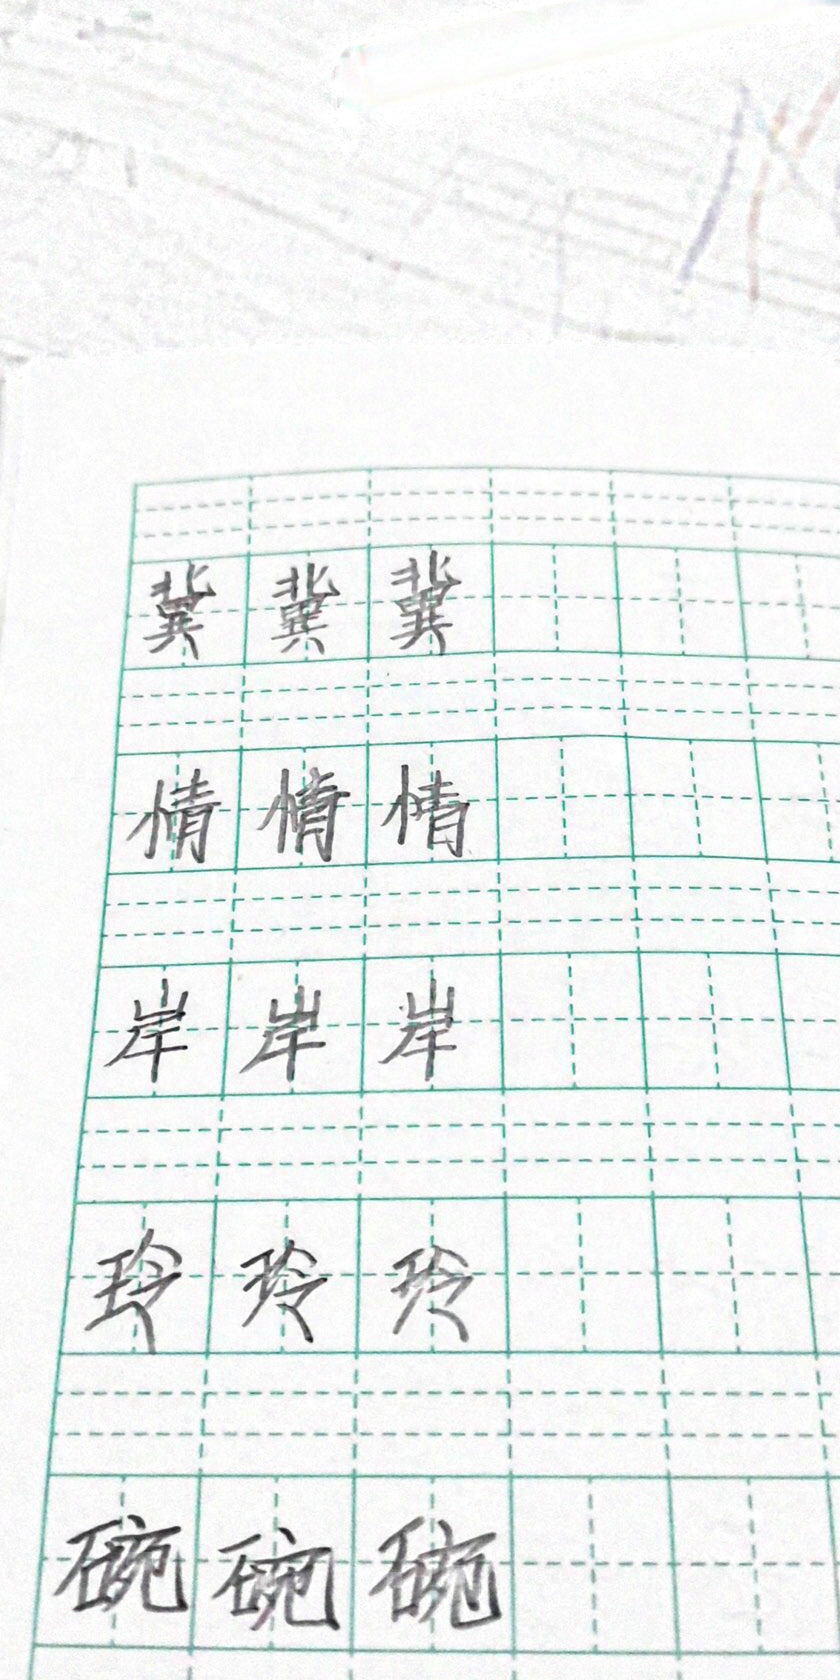 冀冀冀
情情情
岸岸岸
玲玲玲
碗碗碗